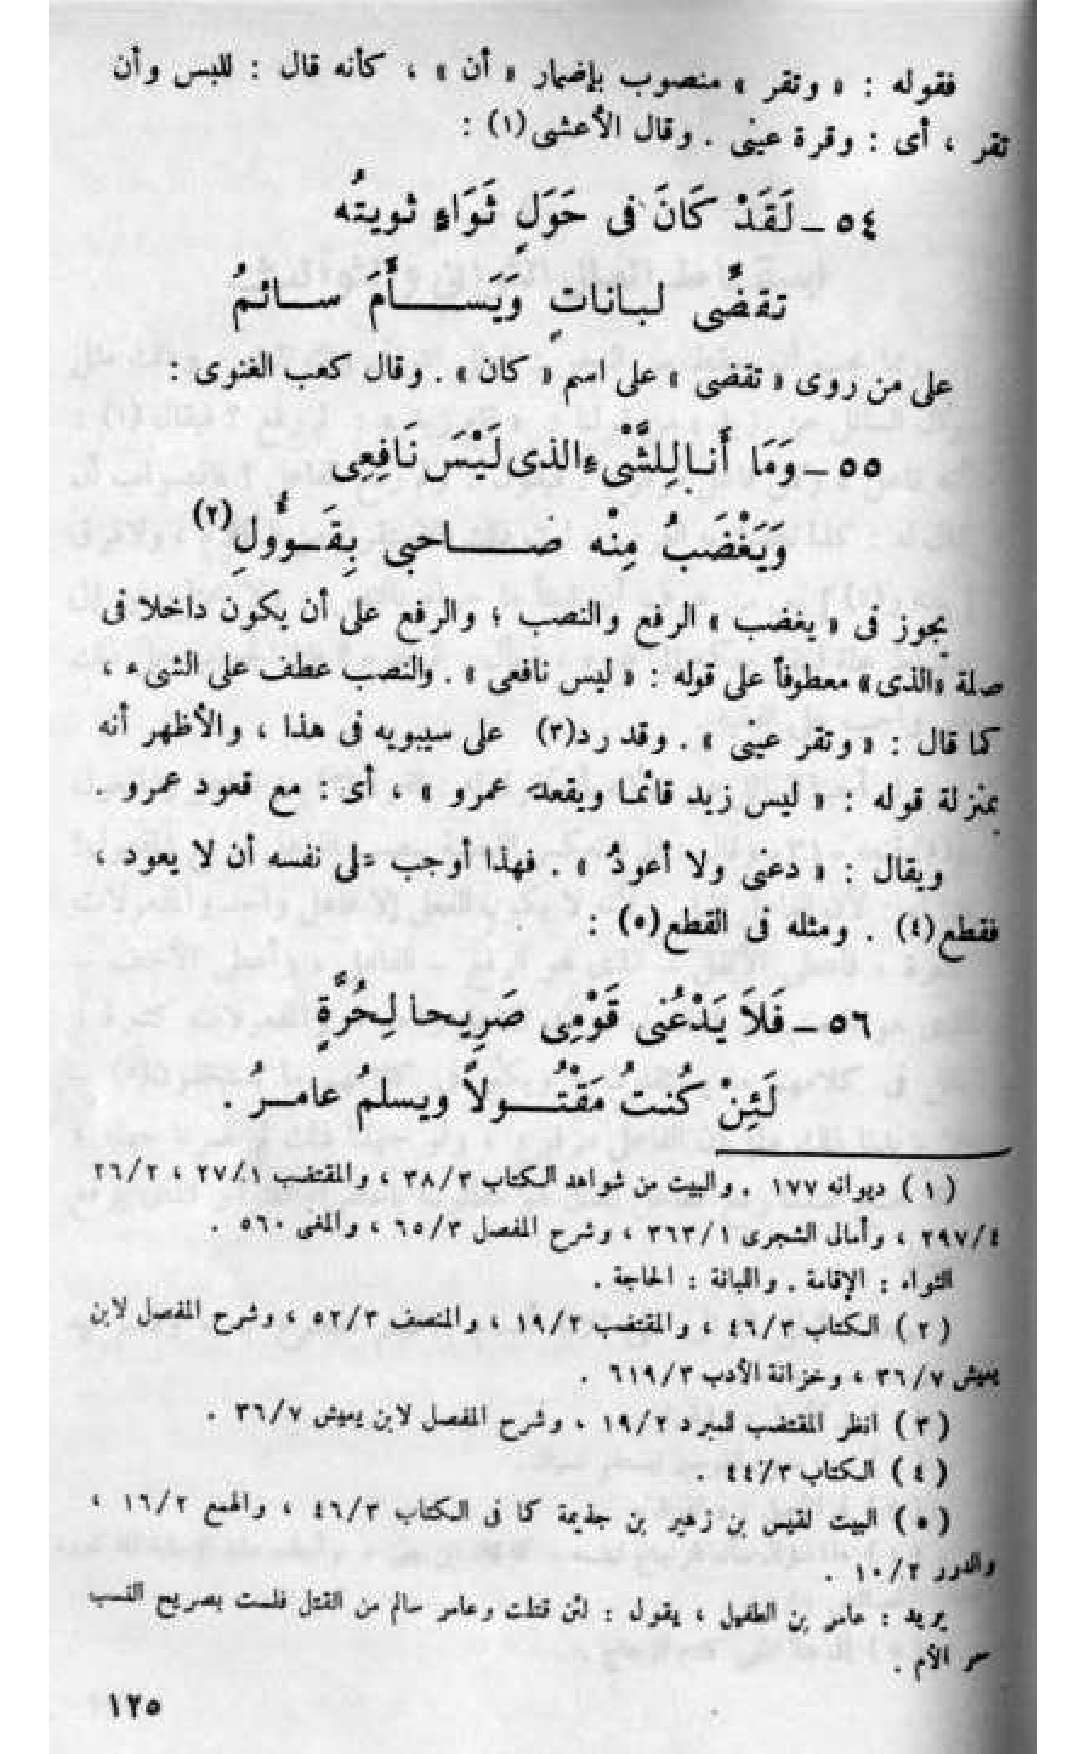 فقوله : « وتقر » منصوب بإضمار « أن » ، كأنه قال : للبس وأن
تقر ، أى : وقرة عينى . وقال الأعشى(١) :
٥٤ – لَقَدْ كَانَ فى حَوَلِ ثَوَاءٍ ثويتُه
تقضَّى لبانات وَيَسـأَمَ سـائمُ
على من روى « تقضى » على اسم « كان » . وقال كعب الغنوى :
٥٥ – وَمَا أَنا لِلشَّىْءِ الذى لَيْسَ نَافِعِى
وَيَغْضَبُ مِنْه صَـاحبى بِقَـوُّولِ(٢)
يجوز فى « يغضب » الرفع والنصب ؛ والرفع على أن يكون داخلا فى
صلة «الذى» معطوفاً على قوله : « ليس نافعى » . والنصب عطف على الشىء ،
كما قال : « وتقر عينى » . وقد رد(٣) على سيبويه فى هذا ، والأظهر أنه
بمنزلة قوله : « ليس زيد قائما ويقعد عمرو » ، أى : مع قعود عمرو .
ويقال : « دعنى ولا أعودُ » . فهذا أوجب على نفسه أن لا يعود ،
فقطع(٤) . ومثله فى القطع(٥) :
٥٦ – فَلاَ يَدْعُنى قَوْمِى صَرِيحا لِحُرَّةٍ
لَئِنْ كُنتُ مَقْتُـولاً ويسلمُ عامـرُ .
(١) ديوانه ١٧٧ . والبيت من شواهد الكتاب ٣٨/٣ ، والمقتضب ٢٧/١ ، ٢٦/٢
٢٩٧/٤ ، وأمالى الشجرى ٣٦٣/١ ، وشرح المفصل ٦٥/٣ ، والمغنى ٥٦٠ .
الثواء : الإقامة . واللبانة : الحاجة .
(٢) الكتاب ٤٦/٣ ، والمقتضب ١٩/٢ ، والمنصف ٥٢/٣ ، وشرح المفصل لابن
يعيش ٣٦/٧ ، وخزانة الأدب ٦١٩/٣ .
(٣) انظر المقتضب للمبرد ١٩/٢ ، وشرح المفصل لابن يعيش ٣٦/٧ .
(٤) الكتاب ٤٤/٣ .
(٥) البيت لقيس بن زهير بن جذيمة كما فى الكتاب ٤٦/٣ ، والهمع ١٦/٢ ،
والدرر ١٠/٢ .
يريد : عامر بن الطفيل ، يقول : لئن قتلت وعامر سالم من القتل فلست بصريح النسب
حر الأم .
١٢٥